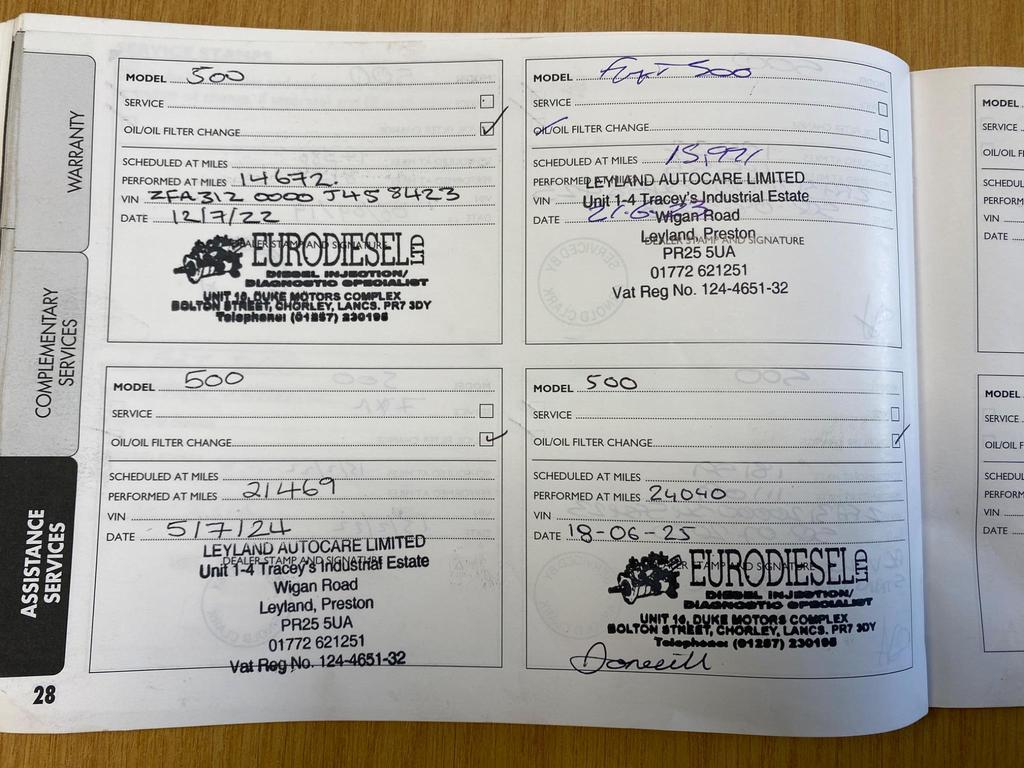 WARRANTY
COMPLEMENTARY
SERVICES
ASSISTANCE
SERVICES
28
MODEL 500
SERVICE
OIL/OIL FILTER CHANGE
SCHEDULED AT MILES
PERFORMED AT MILES 14672
VIN ZFA312 0000 J458423
DATE 12/7/22
DEALER STAMP AND SIGNATURE
EURODIESEL LTD
DIESEL INJECTION/
DIAGNOSTIC SPECIALIST
UNIT 10, DUKE MOTORS COMPLEX
BOLTON STREET, CHORLEY, LANCS. PR7 3DY
Telephone: (01257) 230195
MODEL 500
SERVICE
OIL/OIL FILTER CHANGE
SCHEDULED AT MILES 15,991
PERFORMED AT MILES
LEYLAND AUTOCARE LIMITED
VIN
Unit 1-4 Tracey's Industrial Estate
DATE
Wigan Road
Leyland, Preston
DEALER STAMP AND SIGNATURE
PR25 5UA
01772 621251
Vat Reg No. 124-4651-32
MODEL 500
SERVICE
OIL/OIL FILTER CHANGE
SCHEDULED AT MILES
PERFORMED AT MILES 21469
VIN
DATE 5/7/24
LEYLAND AUTOCARE LIMITED
DEALER STAMP AND SIGNATURE
Unit 1-4 Tracey's Industrial Estate
Wigan Road
Leyland, Preston
PR25 5UA
01772 621251
Vat Reg No. 124-4651-32
MODEL 500
SERVICE
OIL/OIL FILTER CHANGE
SCHEDULED AT MILES
PERFORMED AT MILES 24040
VIN
DATE 18-06-25
EURODIESEL LTD
STAMP AND SIGNATURE
DIESEL INJECTION/
DIAGNOSTIC SPECIALIST
UNIT 10, DUKE MOTORS COMPLEX
BOLTON STREET, CHORLEY, LANCS. PR7 3DY
Telephone: (01257) 230195
MODEL
SERVICE
OIL/OIL FI
SCHEDUL
PERFORM
VIN
DATE
MODEL
SERVICE
OIL/OIL F
SCHEDUL
PERFORM
VIN
DATE